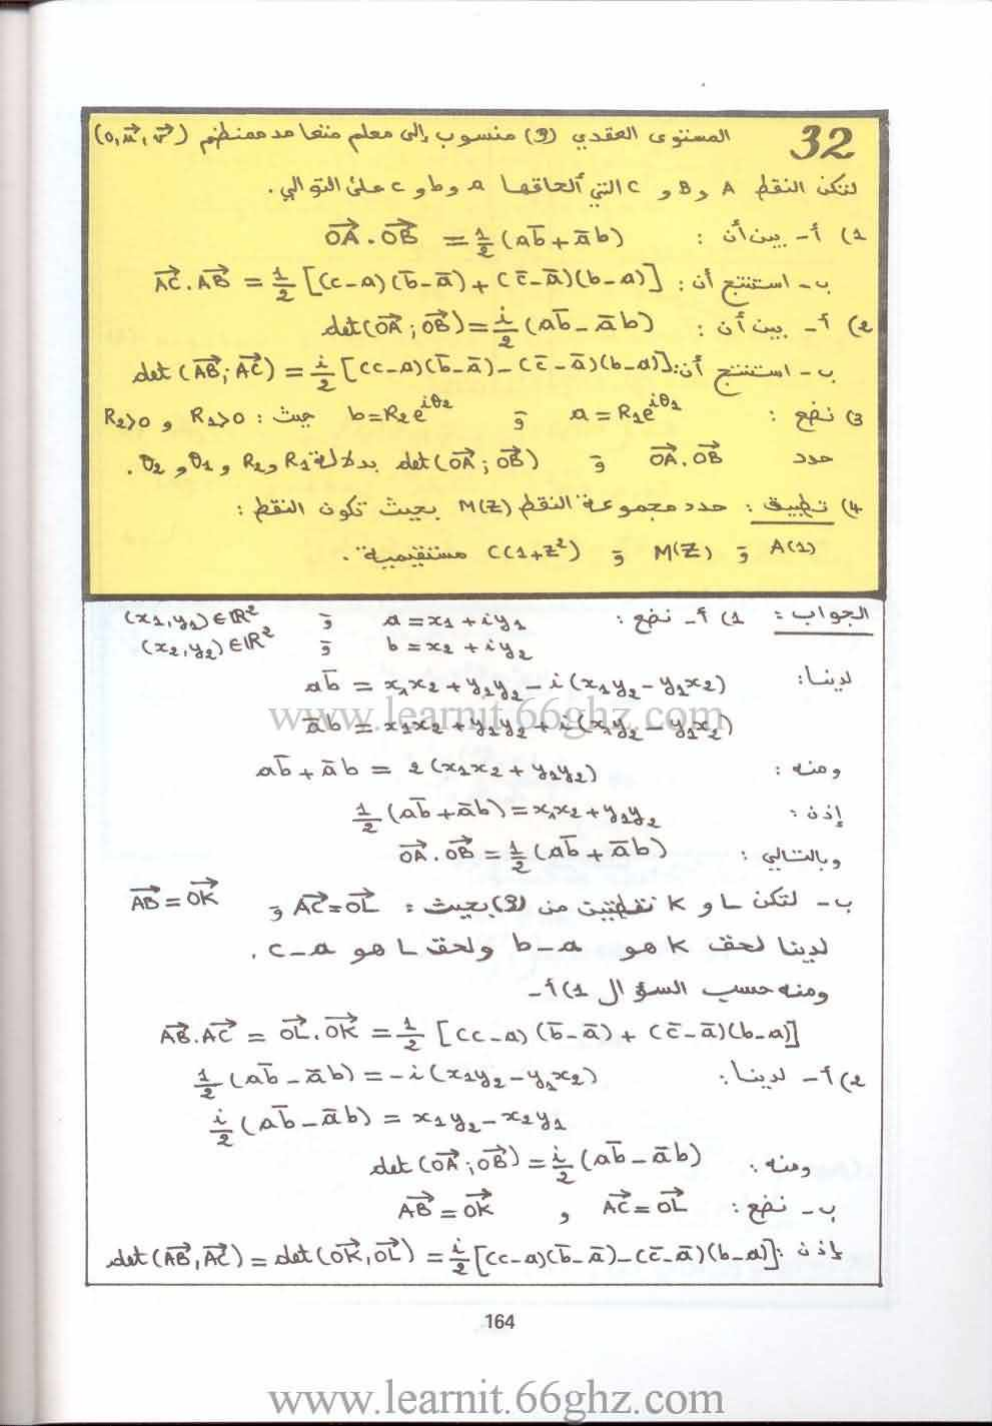 32 المستوى العقدي (P) منسوب إلى معلم متعامد ممنظم (O, u⃗, v⃗)
لتكن النقط A و B و C التي ألحاقها a و b و c على التوالي.
1) أ- بين أن : OA⃗ . OB⃗ = 1/2 (ab̄ + āb)
ب- استنتج أن : AC⃗ . AB⃗ = 1/2 [(c-a)(b̄-ā) + (c̄-ā)(b-a)]
2) أ- بين أن : det(OA⃗ ; OB⃗) = i/2 (ab̄ - āb)
ب- استنتج أن : det(AB⃗ ; AC⃗) = i/2 [(c-a)(b̄-ā) - (c̄-ā)(b-a)]
3) نضع : a = R₁e^{iθ₁} و b = R₂e^{iθ₂} حيث : R₁>0 و R₂>0
حدد OA⃗ . OB⃗ و det(OA⃗ ; OB⃗) بدلالة R₁ و R₂ و θ₁ و θ₂.
4) تطبيق : حدد مجموعة النقط M(Z) بحيث تكون النقط :
A(1) و M(Z) و C(1+Z²) مستقيمية.
الجواب : 1) أ- نضع : a = x₁ + iy₁ و (x₁, y₁) ∈ ℝ²
b = x₂ + iy₂ و (x₂, y₂) ∈ ℝ²
لدينا : ab̄ = x₁x₂ + y₁y₂ - i(x₁y₂ - y₁x₂)
www.learnit.66ghz.com
āb = x₁x₂ + y₁y₂ + i(x₁y₂ - y₁x₂)
ومنه : ab̄ + āb = 2(x₁x₂ + y₁y₂)
إذن : 1/2 (ab̄ + āb) = x₁x₂ + y₁y₂
وبالتالي : OA⃗ . OB⃗ = 1/2 (ab̄ + āb)
ب- لتكن L و K نقطتين من (P) بحيث : AC⃗ = OL⃗ و AB⃗ = OK⃗
لدينا لحق K هو b-a ولحق L هو c-a.
ومنه حسب السؤال 1) أ-
AB⃗ . AC⃗ = OL⃗ . OK⃗ = 1/2 [(c-a)(b̄-ā) + (c̄-ā)(b-a)]
2) أ- لدينا : 1/2 (ab̄ - āb) = -i(x₁y₂ - y₁x₂)
i/2 (ab̄ - āb) = x₁y₂ - x₂y₁
ومنه : det(OA⃗ ; OB⃗) = i/2 (ab̄ - āb)
ب- نضع : AC⃗ = OL⃗ و AB⃗ = OK⃗
إذن : det(AB⃗, AC⃗) = det(OK⃗, OL⃗) = i/2 [(c-a)(b̄-ā) - (c̄-ā)(b-a)]
164
www.learnit.66ghz.com